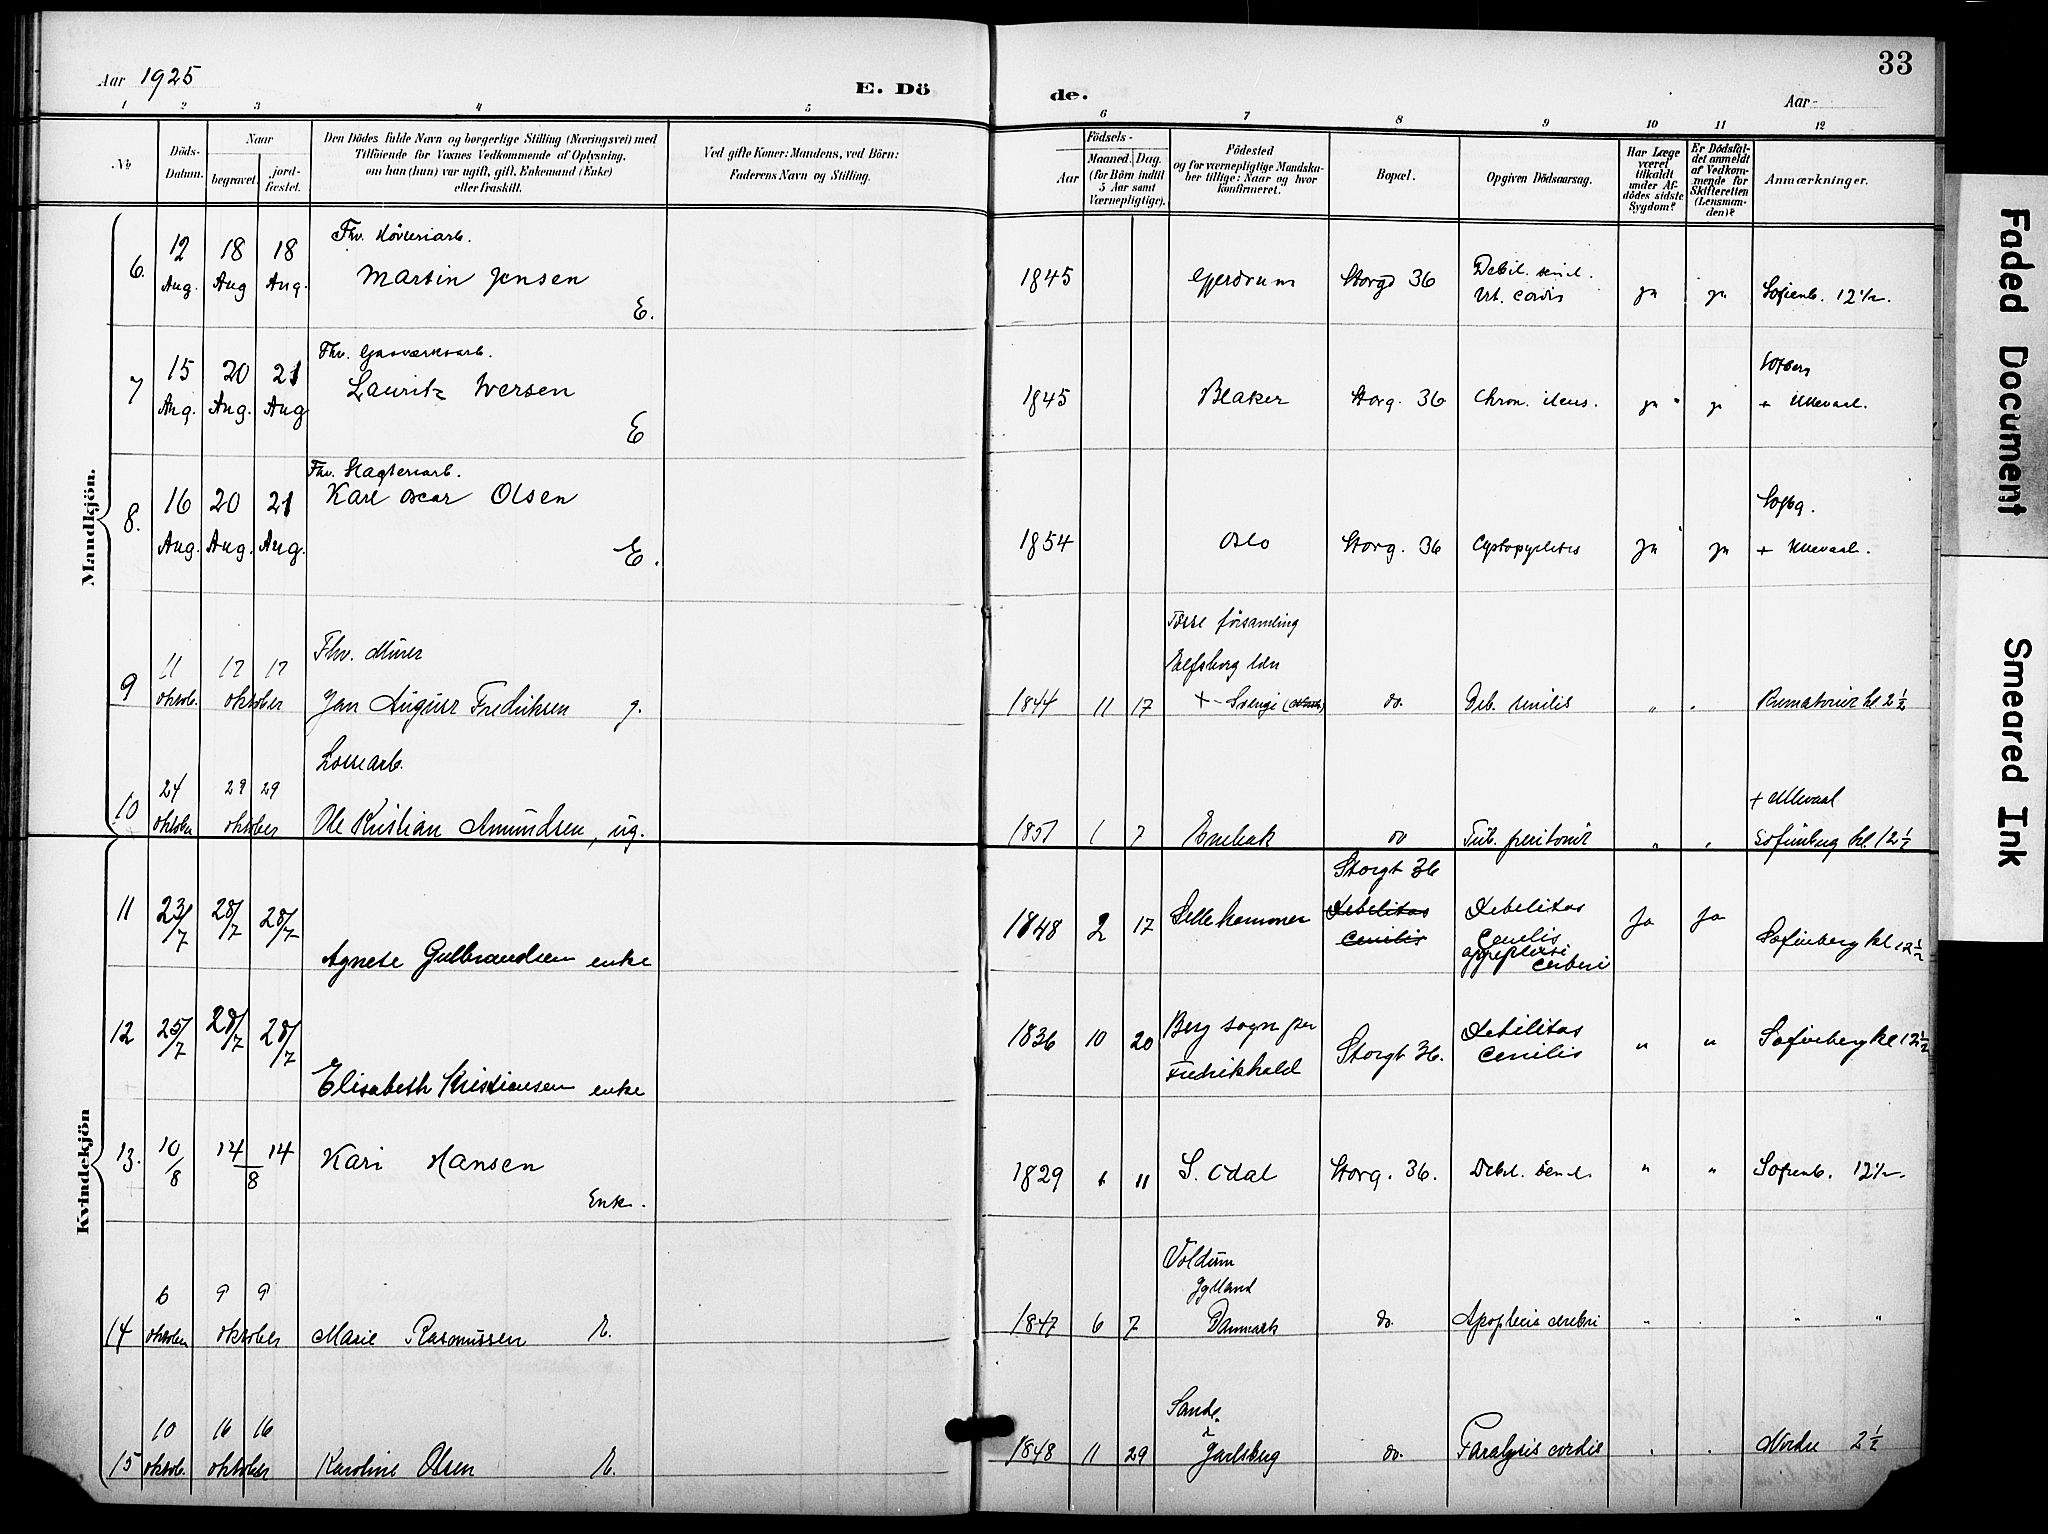 33
Aar 1925
E. Döde.
Aar
1 2 3 4 5 6 7 8 9 10 11 12
№
Döds-Datum.
Naar
begravet.
jordfæstet.
Den Dödes fulde Navn og borgerlige Stilling (Næringsvei) med
Tilföiende for Voxnes Vedkommende af Oplysning,
om han (hun) var ugift, gift, Enkemand (Enke)
eller fraskilt.
Ved gifte Koner: Mandens, ved Börn:
Faderens Navn og Stilling.
Födsels-
Aar
Maaned. Dag.
(for Börn indtil
5 Aar samt
Værnepligtige).
Födested
og for værnepligtige Mandskaber tillige: Naar og hvor
konfirmeret.
Bopæl.
Opgiven Dödsaarsag.
Har Læge
været
tilkaldt
under Afdödes sidste
Sygdom?
Er Dödsfaldet anmeldt
af Vedkommende for
Skifteretten
(Lensmanden)?
Anmærkninger.
Mandkjön.
Fhv. Høvleriarb.
6. 12 Aug. 18 Aug 18 Aug. Martin Jensen E. 1845 Gjerdrum Storgd 36 Debil. senil. Vit. cordis ja ja Sofienb. 12½.
Fhv. Gasværksarb.
7 15 Aug. 20 Aug. 21 Aug Lauritz Iversen E 1845 Blaker Storg. 36 Chron. ileus. ja ja + Ullevaal.
Fhv. Slagteriarb.
8. 16 Aug. 20 Aug. 21 Aug. Karl Oscar Olsen E. 1854 Oslo Storg. 36 Cystopyelitis ja ja Sofbg. + Ullevaal.
Fhv. Murer
9 11 oktob. 17 17 oktober Jan August Fredriksen g. 1844 11 17 Tösse församling Elfsborg län + Sverige do. Deb. senilis " " Krematoriet kl 2½
Lossearb.
10 24 oktober 29 29 oktober Ole Kristian Amundsen, ug. 1851 1 7 Enebak do Tub. peritonit " " + Ullevaal Sofienberg kl. 12½
Kvindekjön
11 23/7 28/7 28/7 Agnete Gulbrandsen enke 1848 2 17 Storgt 36 Debilitas Cenilis Debilitas Cenilis appoplexi cerberi Ja Ja Sofienberg kl 12½
12 25/7 28/7 28/7 Elisabeth Kristiansen enke 1836 10 20 Berg sogn per Fredrikhald Storgt 36. Debilitas Cenilis " " Sofienberg kl 12½
13. 10/8 14 14/8 Kari Hansen Enk. 1829 6 11 S. Odal Storg. 36. Debil. senil. " " Sofienb. 12½.
14 6 oktober 9 9 oktober Marie Rasmussen E. 1847 6 7 Voldum Jylland Danmark do. Apoplexia cerebri " " " "
15 10 oktob. 16 16 oktober Karoline Olsen E. 1848 11 29 Sande i Jarlsberg do. Paralysis cordis " " Nordre 2½
Faded Document
Smeared Ink